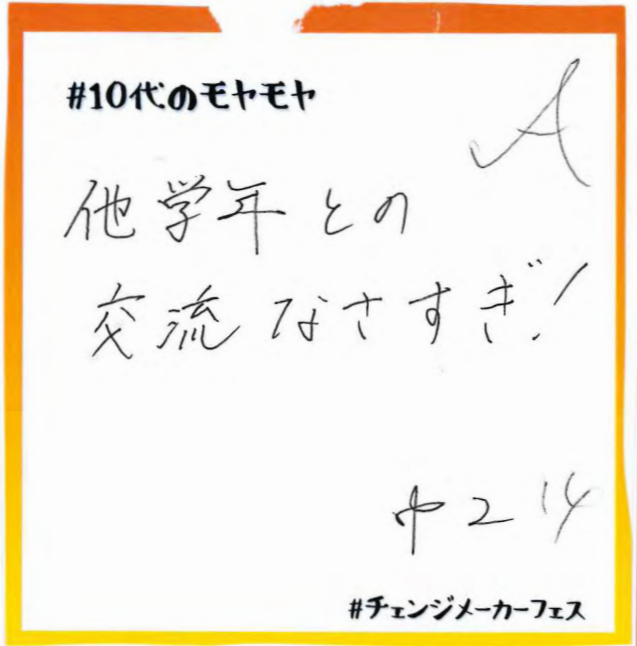 #10代のモヤモヤ
A
他学年との
交流なさすぎ!
中2 14
#チェンジメーカーフェス